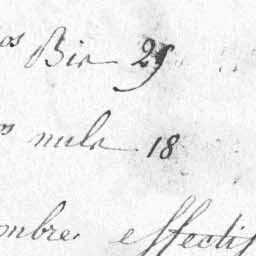 os Bis 25
os nuls 18
ombre effectif